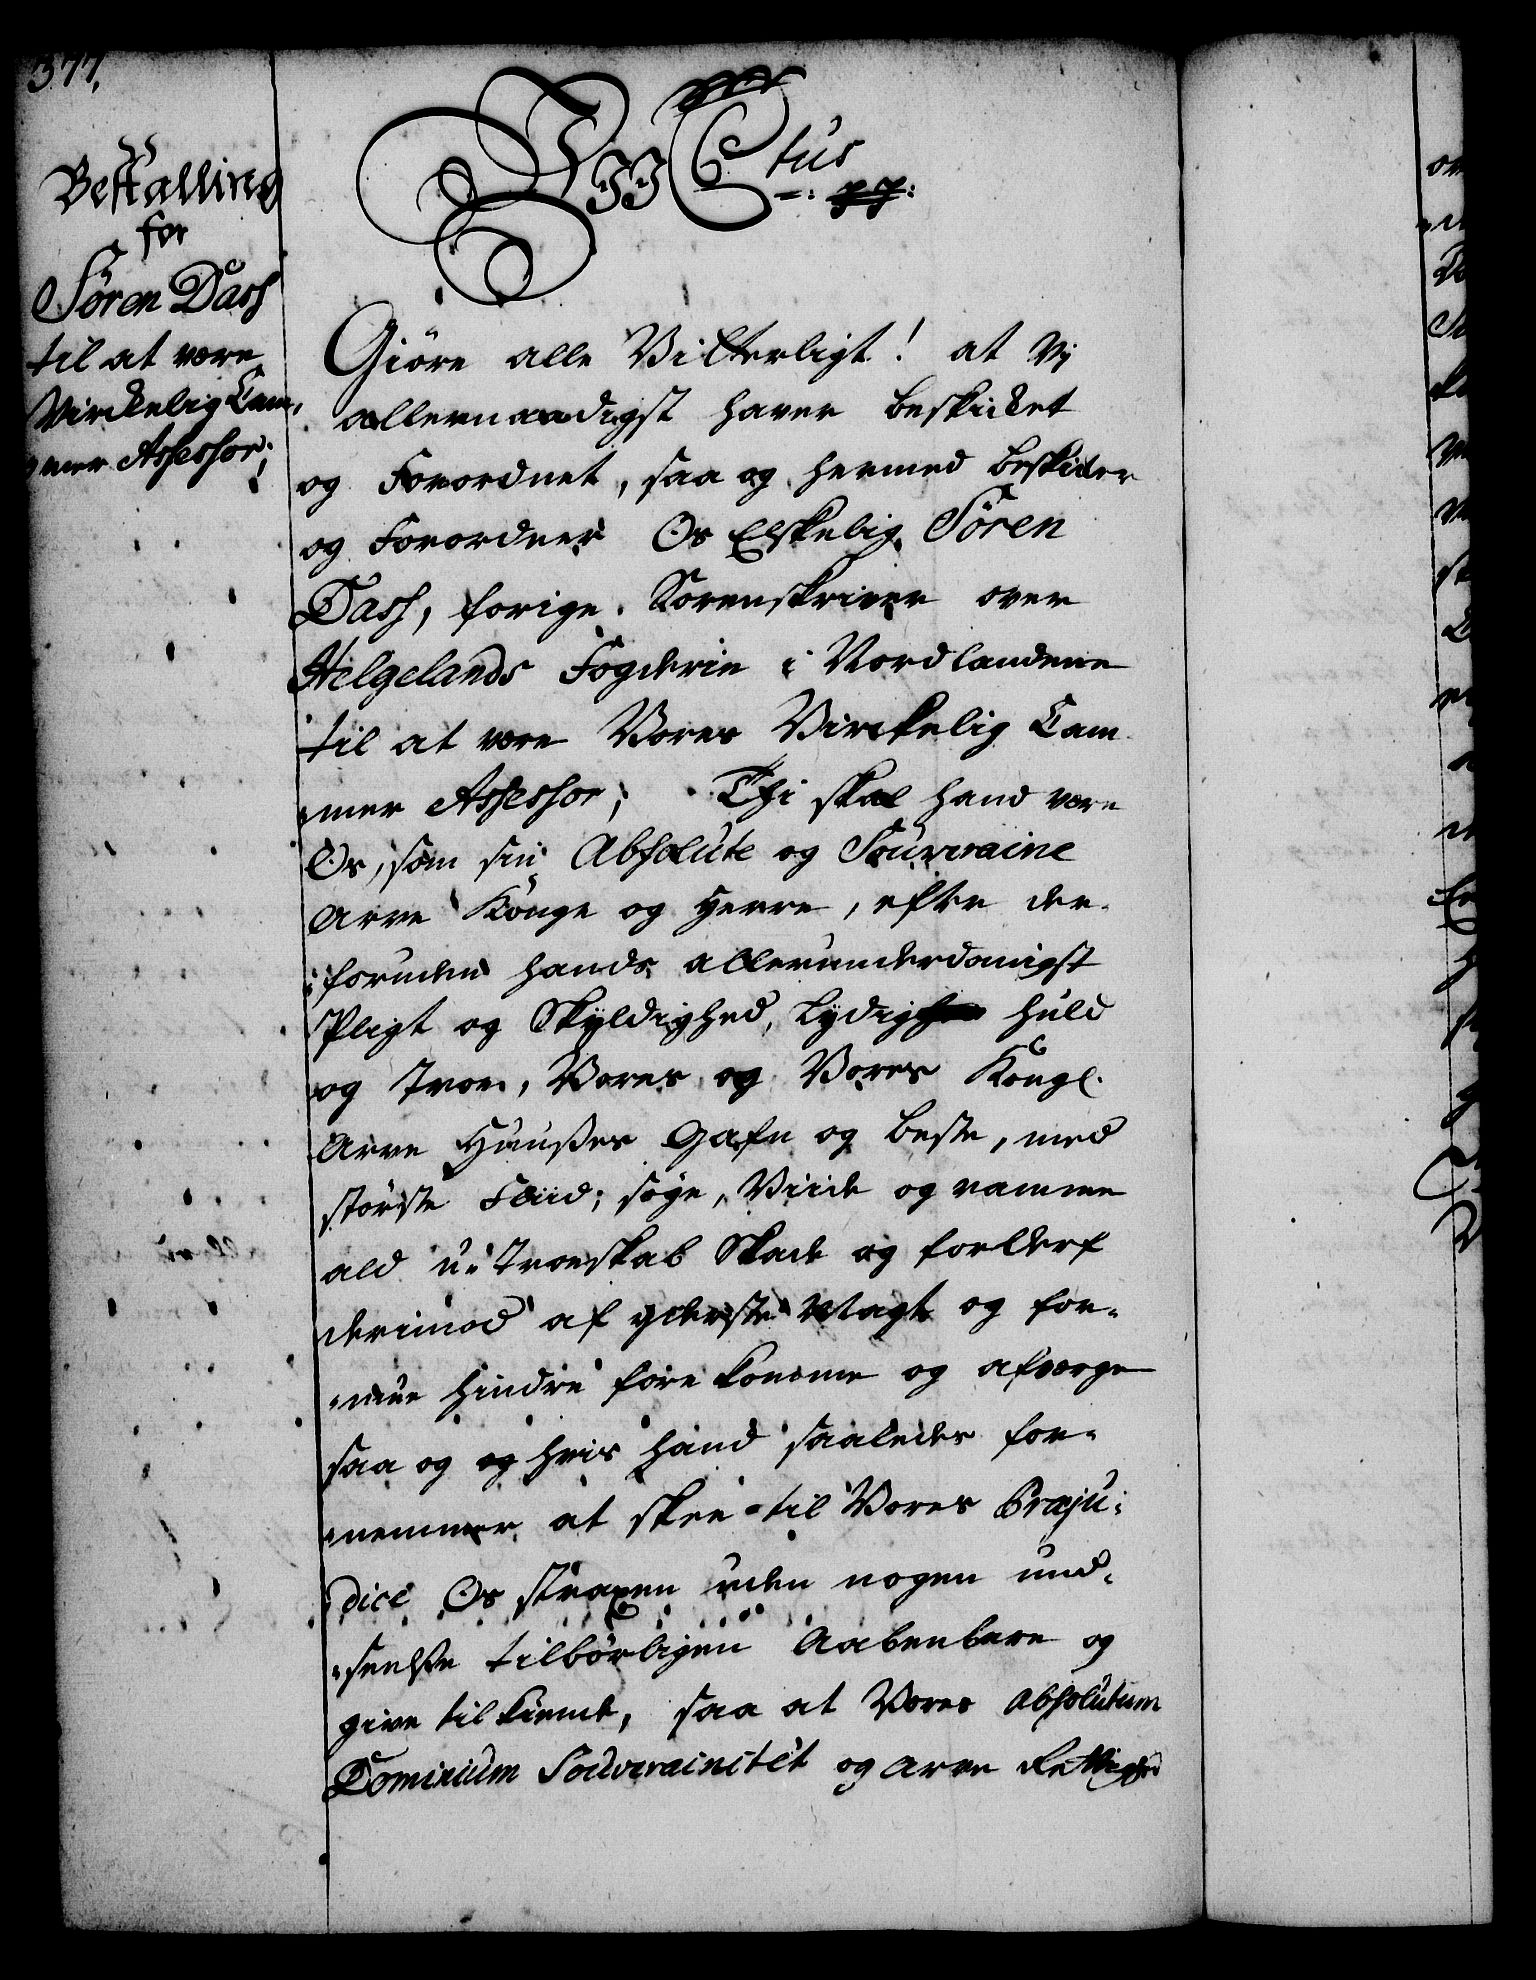 377.
Bestalling
for
Søren Dass
til at være
Virckelig Cam,
mer Assessor;
Vii C6tus
=: pp:
Giöre alle Vitterligt! at Vj
allernaadigst haver beskicket
og Forordnet, saa og hermed beskicker
og Forordner Os Elskelig Søren
Dass, forige Sorenskriver over
Helgelands Fogderie i Nordlandene
til at være Vores Virckelig Cam
mer Assessor; Thi skal hand være
Os, som sin Absolute og Souveraine
Arve Konge og Herre, efter der-
foruden hands allerunderdanigst
Pligt og Skyldighed, Lydig huld
og troe, Vores og Vores Kongl.
Arve Huusses Gafn og beste, med
störste Fliid; söge, Viide og ramme
ald u-troeskab Skade og forderf
derimod af yderste Magt og for-
mue hindre forekomme og afværge
saa og og hvis hand saaledes for-
nemmer at skee til Vores Præju-
dice Os straxen uden nogen und-
seelse tilbörligen Aabenbare og
give tilkiende, saa at Vores Absolutum
Dominium Souverainitet og Arve Rettighed